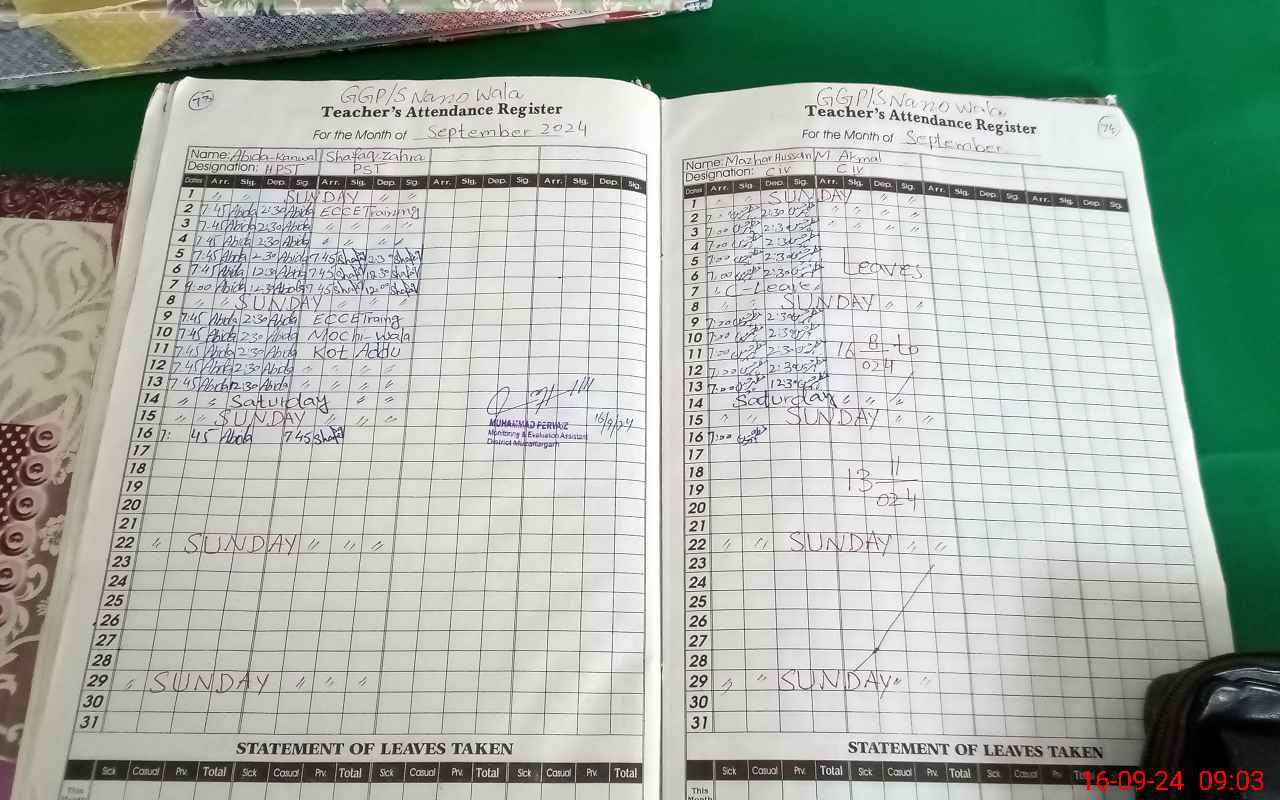 73
GGP/S Nano Wala
Teacher's Attendance Register
For the Month of September 2024
Name: Abida-Kanwal Shafaq-Zahra
Designation: HPST PST
Dates Arr. Sig. Dep. Sig. Arr. Sig. Dep. Sig. Arr. Sig. Dep. Sig. Arr. Sig. Dep. Sig.
1 〃 〃 SUNDAY 〃 〃
2 7:45 Abida 2:30 Abida ECCE Training
3 7:45 Abida 2:30 Abida 〃 〃 〃 〃
4 7:45 Abida 2:30 Abida 〃 〃 〃 〃
5 7:45 Abida 2:30 Abida 7:45 Shafaq 2:30 Shafaq
6 7:45 Abida 12:30 Abida 7:45 Shafaq 12:30 Shafaq
7 9:00 Abida 12:30 Abida 7:45 Shafaq 12:00 Shafaq
8 〃 〃 SUNDAY 〃 〃 〃
9 7:45 Abida 2:30 Abida ECCE Traing
10 7:45 Abida 2:30 Abida Mochi-Wala
11 7:45 Abida 2:30 Abida Kot Addu
12 7:45 Abida 2:30 Abida 〃 〃 〃 〃
13 7:45 Abida 12:30 Abida 〃 〃 〃 〃
14 〃 〃 Saturday 〃 〃 〃
15 〃 〃 SUNDAY 〃 〃 〃
16 7:45 Abida 7:45 Shafaq
16/9/24
MUHAMMAD PERVAIZ
Monitoring & Evaluation Assistant
District Muzaffargarh
17
18
19
20
21
22 〃 SUNDAY 〃 〃 〃
23
24
25
26
27
28
29 〃 SUNDAY 〃 〃 〃
30
31
STATEMENT OF LEAVES TAKEN
Sick Casual Prv. Total Sick Casual Prv. Total Sick Casual Prv. Total Sick Casual Prv. Total
This
Month
74
GGP/S Nano Wala
Teacher's Attendance Register
For the Month of September
Name: Mazhar Hussain M Akmal
Designation: Civ Civ
Dates Arr. Sig. Dep. Sig. Arr. Sig. Dep. Sig. Arr. Sig. Dep. Sig. Arr. Sig. Dep. Sig.
1 〃 〃 SUNDAY 〃 〃
2 7:00 2:30 〃 〃 〃
3 7:00 2:30 〃 〃 〃
4 7:00 2:30
5 7:00 2:30
6 7:00 2:30 Leaves
7 C-Leave
8 〃 〃 SUNDAY 〃 〃
9 7:00 2:30
10 7:00 2:30
11 7:00 2:30 16 8/024 to
12 7:00 2:30
13 7:00 12:30
14 Saturday 〃 〃 〃
15 〃 〃 SUNDAY 〃 〃
16 7:00
17
18 13 11/024
19
20
21
22 〃 〃 SUNDAY 〃 〃
23
24
25
26
27
28
29 〃 〃 SUNDAY 〃 〃
30
31
STATEMENT OF LEAVES TAKEN
Sick Casual Prv. Total Sick Casual Prv. Total Sick Casual Prv.
This
16-09-24 09:03